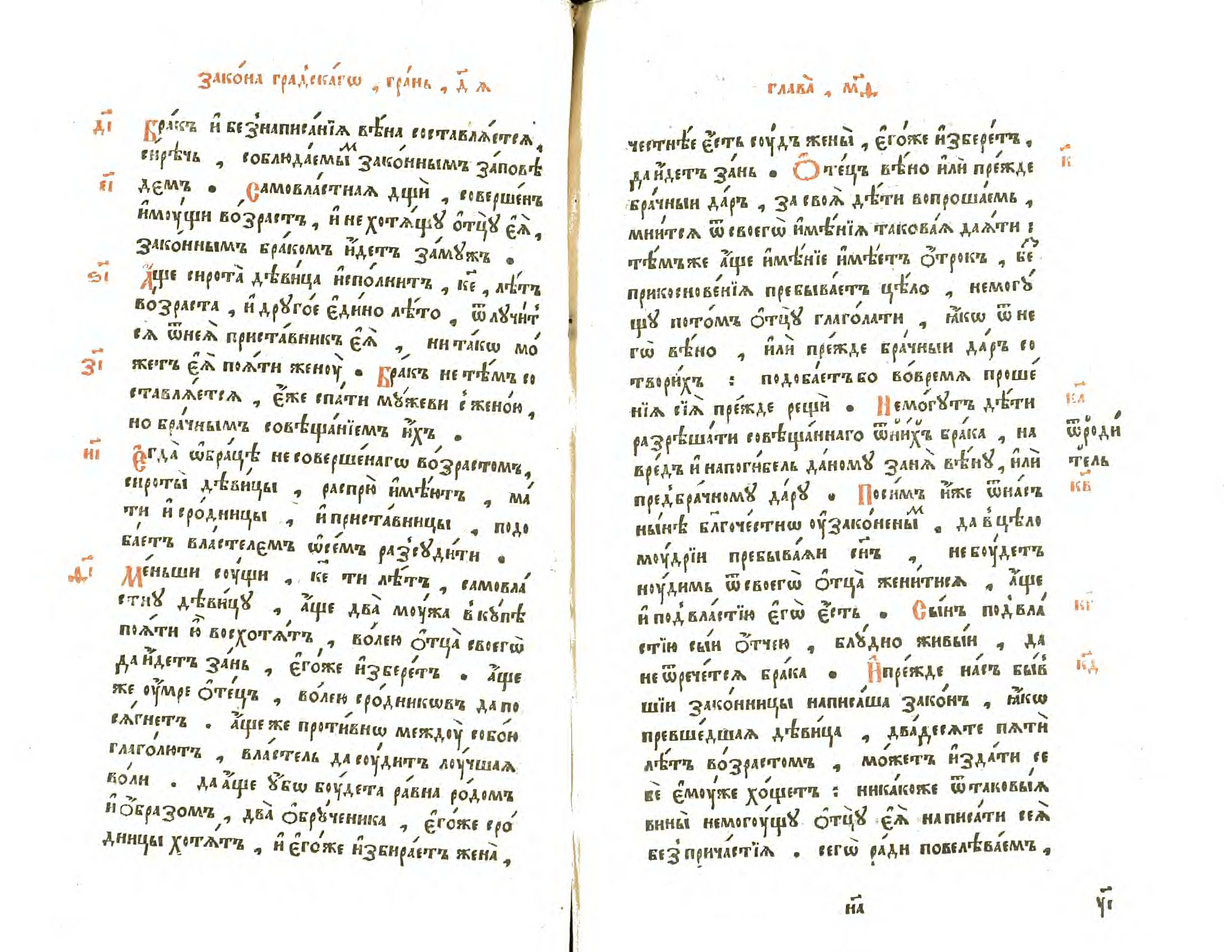 Зако́на гра́дскагѡ , гра́нь , д҃ ѧ
д҃і Бра́къ и҆ без̾написа́нїѧ вѣ́на составлѧ́етсѧ ,
си́рѣчь , соблюда́емыⷨ зако́ннымъ за́повѣ
е҃і де́мъ . Самовла́стнаѧ дщѝ , соверше́нъ
и҆мꙋ́щи во́зрастъ , и҆ не хотѧ́щꙋ ѻ҆тцꙋ̀ є҆ѧ̀ ,
зако́ннымъ бра́комъ и҆́детъ за́мꙋжъ .
ѕ҃і А҆́ще сирота̀ дѣви́ца и҆спо́лнитъ , к҃е , лѣ́тъ
во́зраста , и҆ дрꙋго́е є҆ди́но лѣ́то , ѿлꙋчи́т
сѧ ѿнеѧ̀ приста́вникъ є҆ѧ̀ , ни та́кѡ мо́
з҃і жетъ є҆ѧ̀ поѧ́ти женꙋ̀ . Бра́къ не тѣ́мъ со
ставлѧ́етсѧ , є҆́же спа́ти мꙋ́жеви с̾ жено́ю ,
но бра́чнымъ совѣща́нїемъ и҆́хъ .
и҃і Є҆гда̀ ѡ҆бра́цѣ не соверше́нагѡ во́зрастомъ ,
сироты̀ дѣви́цы , распрю̀ и҆мѣ́ютъ , ма́
ти и҆ сро́дницы , и҆ приста́вницы , подо
ба́етъ власте́лемъ ѡ҆се́мъ разсꙋди́ти .
ѳ҃і Ме́ньши сꙋ́щи , к҃е ти лѣ́тъ , самовла́
стнꙋ дѣви́цꙋ , а҆́ще два̀ мꙋ́жа в̾кꙋ́пѣ
поѧ́ти ю҆̀ восхотѧ́тъ , во́лею ѻ҆тца̀ своегѡ̀
да и҆́детъ за́нь , є҆го́же и҆збере́тъ . а҆́ще
же ᲂу҆́мре ѻ҆те́цъ , во́лею сро́дникѡвъ да по
сѧ́гнетъ . а҆́ще же проти́внѡ междꙋ̀ собо́ю
глаго́лютъ , власте́ль да сꙋ́дитъ лꙋ́чшаѧ
во́ли . да а҆́ще ᲂу҆́бѡ бꙋ́дета ра́вна ро́домъ
и҆ ѻ҆́бразомъ , два̀ ѻ҆брꙋ́ченика , є҆го́же сро́
дницы хотѧ́тъ , и҆ є҆го́же и҆збира́етъ жена̀ ,
глава̀ , м҃ѳ
честнѣ́е є҆́сть сꙋ́дъ жены̀ , є҆го́же и҆збере́тъ ,
да и҆́детъ за́нь . Ѻ҆те́цъ вѣ́но и҆лѝ пре́жде к҃
бра́чныи да́ръ , за своѧ̀ дѣ́ти вопроша́емь ,
мни́тсѧ ѿ своегѡ̀ и҆мѣ́нїѧ такова́ѧ даѧ́ти :
тѣ́мъже а҆́ще и҆мѣ́нїе и҆мѣ́етъ ѻ҆́трокъ , беⷥ
прикоснове́нїѧ пребыва́етъ цѣ́ло , немогꙋ́
щꙋ пото́мъ ѻ҆тцꙋ̀ глаго́лати , ꙗ҆́кѡ ѿ не
гѡ̀ вѣ́но , и҆лѝ пре́жде бра́чныи да́ръ со
твори́хъ : подоба́етъ бо во́времѧ проше́
нїѧ сїѧ̀ пре́жде рещѝ . Немо́гꙋтъ дѣ́ти к҃а
разрѣша́ти совѣща́ннаго ѿни́хъ бра́ка , на ѿроди́
вре́дъ и҆ напоги́бель да́номꙋ занѧ̀ вѣ́нꙋ , и҆лѝ тель
пред̾бра́чномꙋ да́рꙋ . По си́мъ и҆́же ѿ на́съ к҃в
ны́нѣ бл҃гоче́стнѡ ᲂу҆зако́неныⷨ , да в̾цѣ́ло
мꙋ́дрїи пребыва́ѧи сн҃ъ , не бꙋ́детъ
нꙋ́димь ѿ своегѡ̀ ѻ҆тца̀ жени́тисѧ , а҆́ще
и҆ под̾ вла́стїю є҆гѡ̀ є҆́сть . Сы́нъ под̾ вла́ к҃г
стїю сы́и ѻ҆́тчею , блꙋ́дно живы́и , да
не ѿрече́тсѧ бра́ка . И҆ пре́жде на́съ бы́в к҃д
шїи зако́нницы написа́ша зако́нъ , ꙗ҆́кѡ
превше́дшаѧ дѣви́ца , два́десѧте пѧтѝ
лѣ́тъ во́зрастомъ , мо́жетъ и҆зда́ти се
бѐ є҆мꙋ́же хо́щетъ : никако́же ѿ таковы́ѧ
вины̀ немогꙋ́щꙋ ѻ҆тцꙋ̀ є҆ѧ̀ написа́ти сеѧ̀
без̾ прича́стїѧ . сегѡ̀ ра́ди повелѣва́емъ ,
н҃а